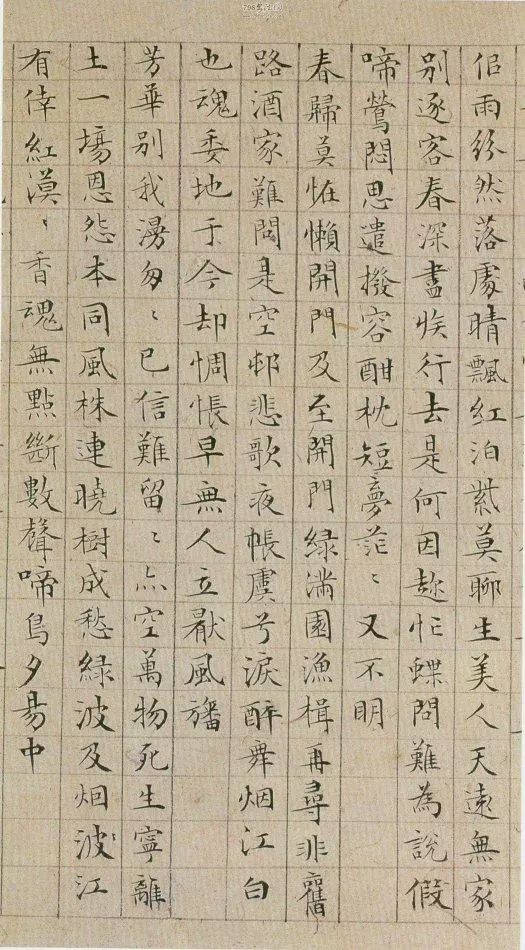 798艺术网
侣雨紛然落處晴飄紅泊紫莫聊生美人天遠無家
别逐客春深盡族行去是何因趂忙蝶問難為說假
啼鶯悶思遣撥容酣枕短夢茫〻又不明
春歸莫怪懶開門及至開門綠滿園漁楫再尋非舊
路酒家難問是空邨悲歌夜帳虞兮淚醉舞烟江白
也魂委地于今却惆悵早無人立厭風旛
芳華别我漫匆〻已信難留〻亦空萬物死生寧離
土一場恩怨本同風株連曉樹成愁綠波及烟波江
有倖紅漠〻香魂無點斷數聲啼鳥夕昜中